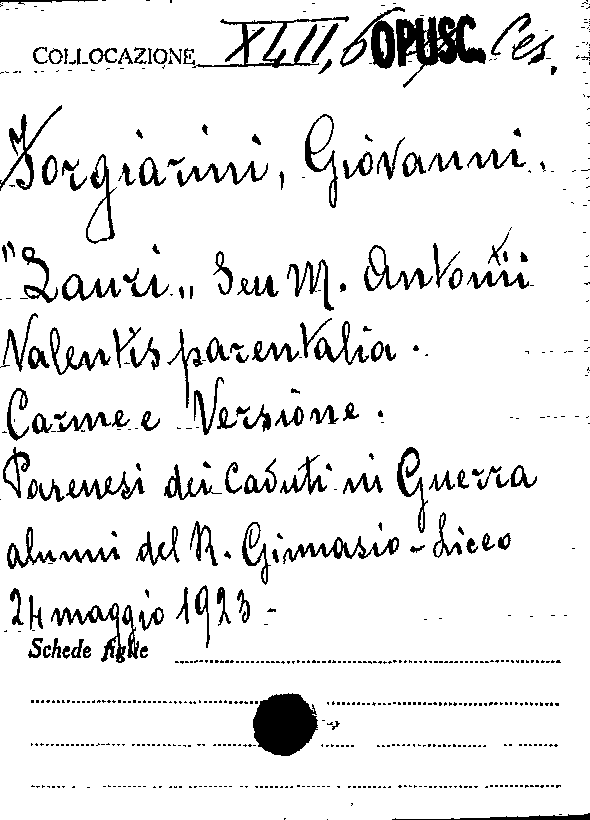 COLLOCAZIONE XLII, 6 OPUSC. Ces.
Forgiarini, Giovanni.
"Lauri" seu M. Antonii
Valentis parentalia.
Carme e Versione.
Parenesi dei Caduti in Guerra
alunni del R. Ginnasio-Liceo
24 maggio 1923 -
Schede figlie